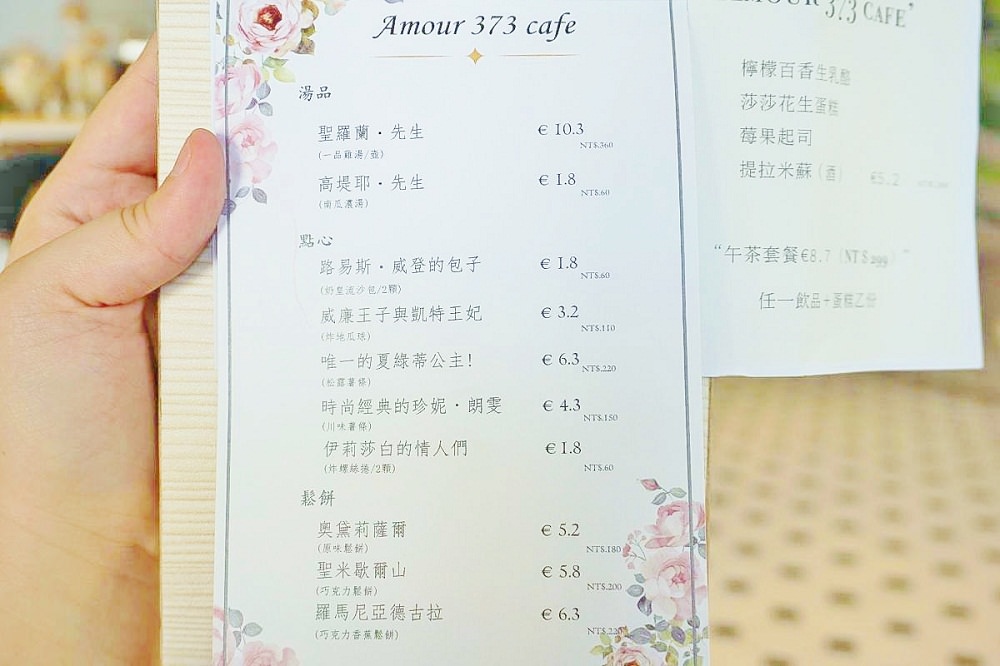 Amour 373 cafe
湯品
聖羅蘭・先生 € 10.3
(一品雞湯/壺) NT$.360
高堤耶・先生 € 1.8
(南瓜濃湯) NT$.60
點心
路易斯・威登的包子 € 1.8
(奶皇流沙包/2顆) NT$.60
威廉王子與凱特王妃 € 3.2
(炸地瓜球) NT$.110
唯一的夏綠蒂公主! € 6.3
(松露薯條) NT$.220
時尚經典的珍妮・朗雯 € 4.3
(川味薯條) NT$.150
伊莉莎白的情人們 € 1.8
(炸螺絲捲/2顆) NT$.60
鬆餅
奧黛莉薩爾 € 5.2
(原味鬆餅) NT$.180
聖米歇爾山 € 5.8
(巧克力鬆餅) NT$.200
羅馬尼亞德古拉 € 6.3
(巧克力香蕉鬆餅) NT$.220
AMOUR 373 CAFE’
檸檬百香生乳酪
莎莎花生蛋糕
莓果起司
提拉米蘇（酒） €5.2
“午茶套餐€8.7（NT$299）”
任一飲品+蛋糕乙份